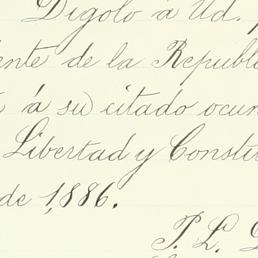 Digolo á Ud.
ente de la Republi
á su citado ocur
Libertad y Constitu
de 1,886.
T. L.